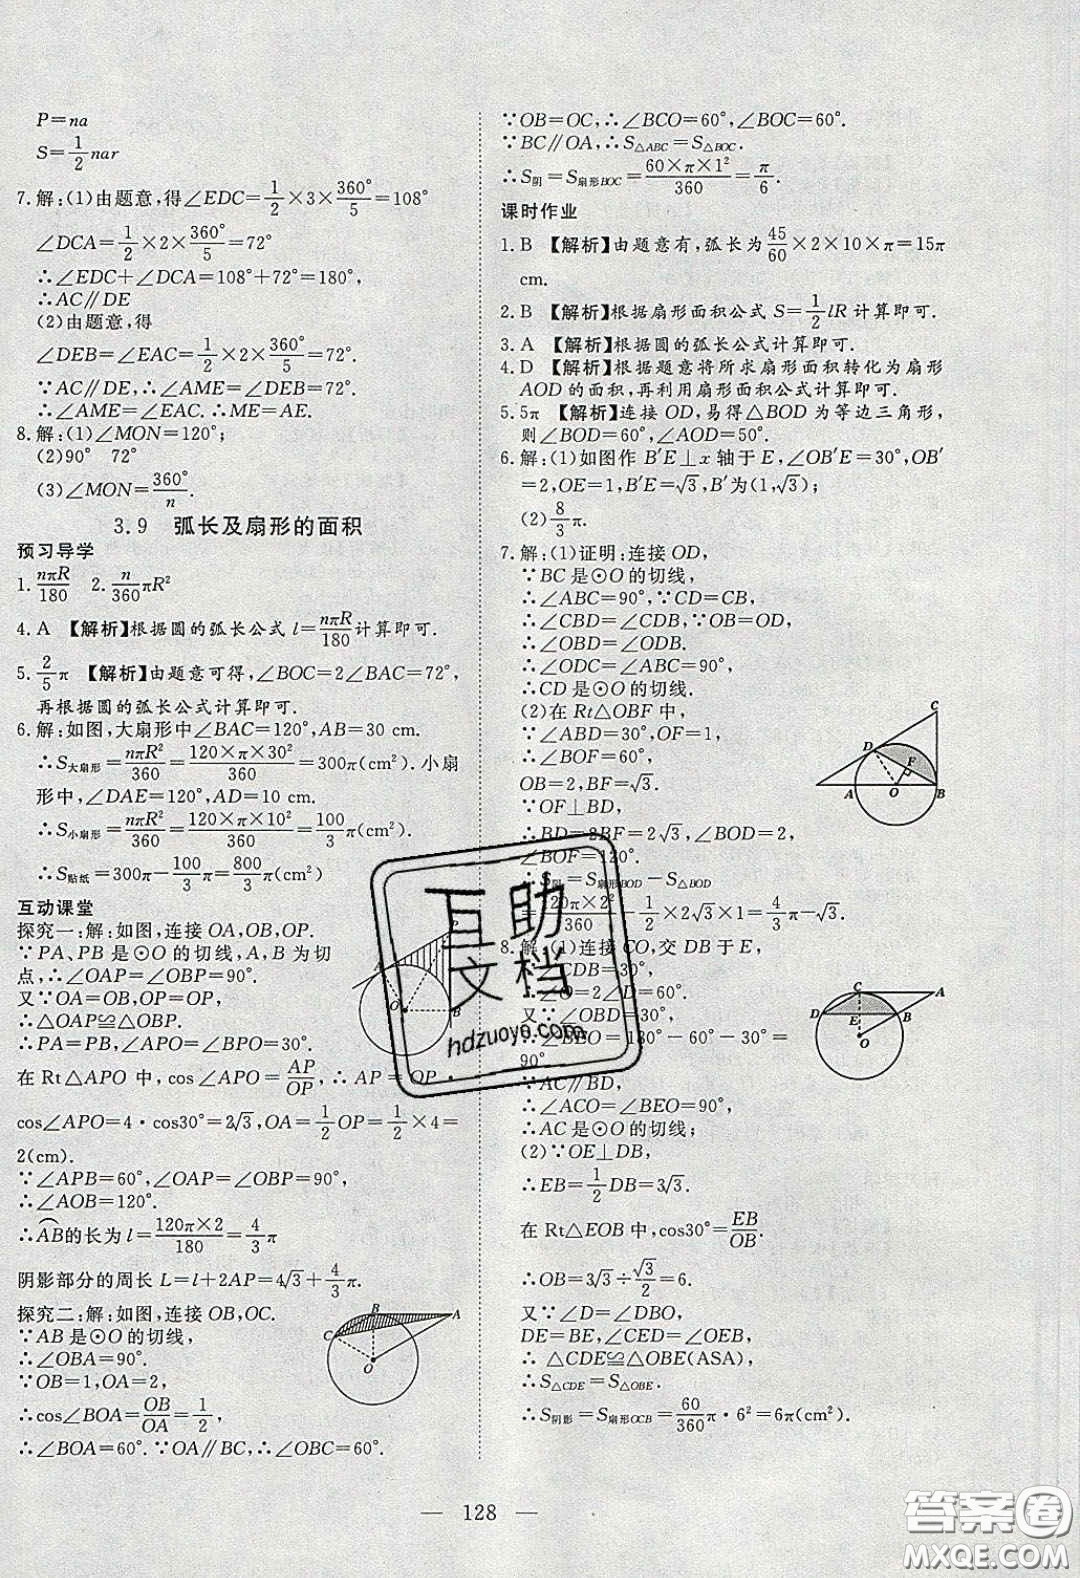 P=na
S=1/2 nar
7.解:(1)由题意,得∠EDC=1/2×3×360°/5=108°
∠DCA=1/2×2×360°/5=72°
∴∠EDC+∠DCA=108°+72°=180°,
∴AC∥DE
(2)由题意,得
∠DEB=∠EAC=1/2×2×360°/5=72°
∵AC∥DE,∴∠AME=∠DEB=72°
∴∠AME=∠EAC. ∴ME=AE.
8.解:(1)∠MON=120°;
(2)90° 72°
(3)∠MON=360°/n.
3.9 弧长及扇形的面积
预习导学
1.nπR/180 2.n/360 πR²
4.A 【解析】根据圆的弧长公式 l=nπR/180 计算即可.
5.2/5 π 【解析】由题意可得,∠BOC=2∠BAC=72°,
再根据圆的弧长公式计算即可.
6.解:如图,大扇形中∠BAC=120°,AB=30 cm.
∴S大扇形=nπR²/360=120×π×30²/360=300π(cm²). 小扇
形中,∠DAE=120°,AD=10 cm.
∴S小扇形=nπR²/360=120×π×10²/360=100/3 π(cm²)
∴S贴纸=300π-100/3 π=800/3 π(cm²)
互动课堂
探究一:解:如图,连接OA,OB,OP.
∵PA,PB是⊙O的切线,A,B为切
点,∴∠OAP=∠OBP=90°.
又∵OA=OB,OP=OP,
∴△OAP≌△OBP.
∴PA=PB,∠APO=∠BPO=30°.
在Rt△APO中,cos∠APO=AP/OP,∴AP=OP·
cos∠APO=4·cos30°=2√3,OA=1/2 OP=1/2×4=
2(cm).
∵∠APB=60°,∠OAP=∠OBP=90°,
∴∠AOB=120°.
∴AB的长为 l=120π×2/180=4/3 π
阴影部分的周长 L=l+2AP=4√3+4/3 π.
探究二:解:如图,连接OB,OC.
∵AB是⊙O的切线,
∴∠OBA=90°.
∵OB=1,OA=2,
∴cos∠BOA=OB/OA=1/2,
∴∠BOA=60°. ∵OA∥BC,∴∠OBC=60°.
P
A
O
B
B
A
C
O
∵OB=OC,∴∠BCO=60°,∠BOC=60°.
∵BC∥OA,∴S△ABC=S△BOC.
∴S阴=S扇形BOC=60×π×1²/360=π/6.
课时作业
1.B 【解析】由题意有,弧长为45/60×2×10×π=15π
cm.
2.B 【解析】根据扇形面积公式 S=1/2 lR 计算即可.
3.A 【解析】根据圆的弧长公式计算即可.
4.D 【解析】根据题意将所求扇形面积转化为扇形
AOD的面积,再利用扇形面积公式计算即可.
5.5π 【解析】连接OD,易得△BOD为等边三角形,
则∠BOD=60°,∠AOD=50°.
6.解:(1)如图作B′E⊥x轴于E,∠OB′E=30°,OB′
=2,OE=1,B′E=√3,B′为(1,√3);
(2)8/3 π.
7.解:(1)证明:连接OD,
∵BC是⊙O的切线,
∴∠ABC=90°,∵CD=CB,
∴∠CBD=∠CDB,∵OB=OD,
∴∠OBD=∠ODB.
∴∠ODC=∠ABC=90°,
∴CD是⊙O的切线.
(2)在Rt△OBF中,
∵∠ABD=30°,OF=1,
∴∠BOF=60°,
OB=2,BF=√3.
∵OF⊥BD,
∴BD=2BF=2√3,∠BOD=2
∠BOF=120°.
∴S阴=S扇形BOD-S△BOD
=120π×2²/360-1/2×2√3×1=4/3 π-√3.
C
D
F
A
O
B
8.解:(1)连接CO,交DB于E,
∴∠O=2∠CDB=60°,
又∵∠OBD=30°,
∴∠BEO=180°-60°-30°=
90°.
∵AC∥BD,
∴∠ACO=∠BEO=90°,
∴AC是⊙O的切线;
(2)∵OE⊥DB,
∴EB=1/2 DB=3√3.
在Rt△EOB中,cos30°=EB/OB.
∴OB=3√3÷√3/2=6.
又∵∠D=∠DBO,
DE=BE,∠CED=∠OEB,
∴△CDE≌△OBE(ASA),
∴S△CDE=S△OBE.
∴S阴影=S扇形OCB=60/360 π·6²=6π(cm²).
C
A
D
E
B
O
互助
文档
hdzuoye.com
— 128 —
答案圈
MXQE.COM